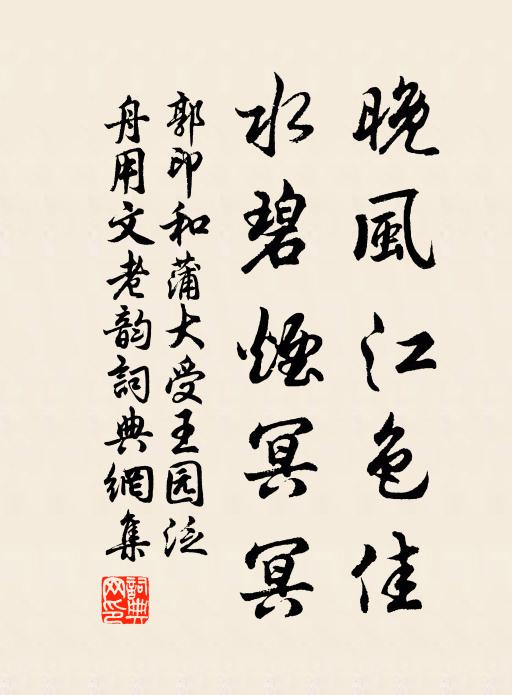 晚風江色佳
水碧煙冥冥
郭印和蒲大受王园泛
舟用文老韵詞典網集
詞典網印